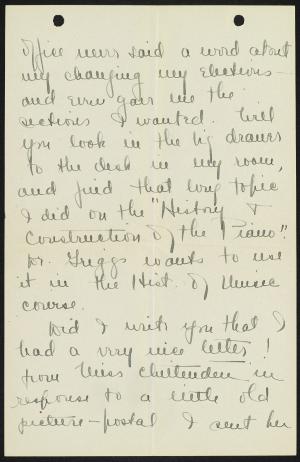 office never said a word about
my changing my elections -
and even gave me the
sections I wanted. Will
you look in the big drawer
to the desk in my room,
and find that long topic
I did on the "History &
Construction of the Piano".
Dr. Griggs wants to use
it in the Hist. of Music
course.
Did I write you that I
had a very nice letter!
from Miss Chittenden in
response to a little old
picture-postal I sent her